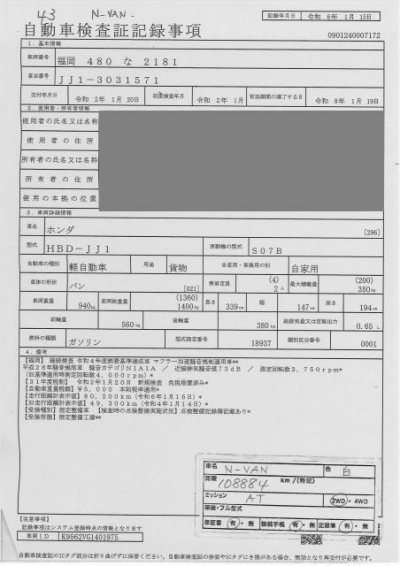 43 N-VAN
自動車検査証記録事項
記録年月日 令和 6年 1月 15日
0901240007172
1. 基本情報
車両番号 福岡 480 な 2181
車台番号 JJ1-3031571
交付年月日 令和 2年 1月 20日 初度検査年月 令和 2年 1月 有効期間の満了する日 令和 8年 1月 19日
2. 使用者・所有者情報
使用者の氏名又は名称
使用者の住所
所有者の氏名又は名称
所有者の住所
使用の本拠の位置
3. 車両詳細情報
車名 ホンダ [296]
型式 HBD-JJ1 原動機の型式 S07B
自動車の種別 軽自動車 用途 貨物 自家用・事業用の別 自家用
車体の形状 バン [021] 乗車定員 (4) 2人 最大積載量 (200) 350kg
車両重量 940kg 車両総重量 (1360) 1400kg 長さ 339cm 幅 147cm 高さ 194cm
前軸重 560kg 後軸重 380kg 総排気量又は定格出力 0.65 L
燃料の種類 ガソリン 型式指定番号 18937 類別区分番号 0001
4. 備考
【福岡】 継続検査 令和4年度燃費基準達成車 マフラー加速騒音規制適用車**
平成28年騒音規制車 騒音カテゴリN1A1A / 近接排気騒音値73dB / 測定回転数3,750rpm**
(旧基準適用時測定回転数4,000rpm)*
【31年度税制】 令和2年1月20日 新規検査 免税措置済み*
【自動車重量税額】 ¥5,000 本則税率適用*
【走行距離計表示値】 90,200km (令和6年1月15日)*
【旧走行距離計表示値】 49,300km (令和4年1月14日)*
【受検種別】 指定整備車 【検査時の点検整備実施状況】 点検整備記録簿記載あり*
【受検形態】 指定整備工場**
車名 N-VAN 色 白
距離 108884 km/(特記)
ミッション AT 2WD・4WD
車検・フル型式
保証書 有・無 取説手帳 有・無 記録簿 有・無
【注意事項】
記録事項はシステム登録時点の情報となります
車両ID E9562VG1401975